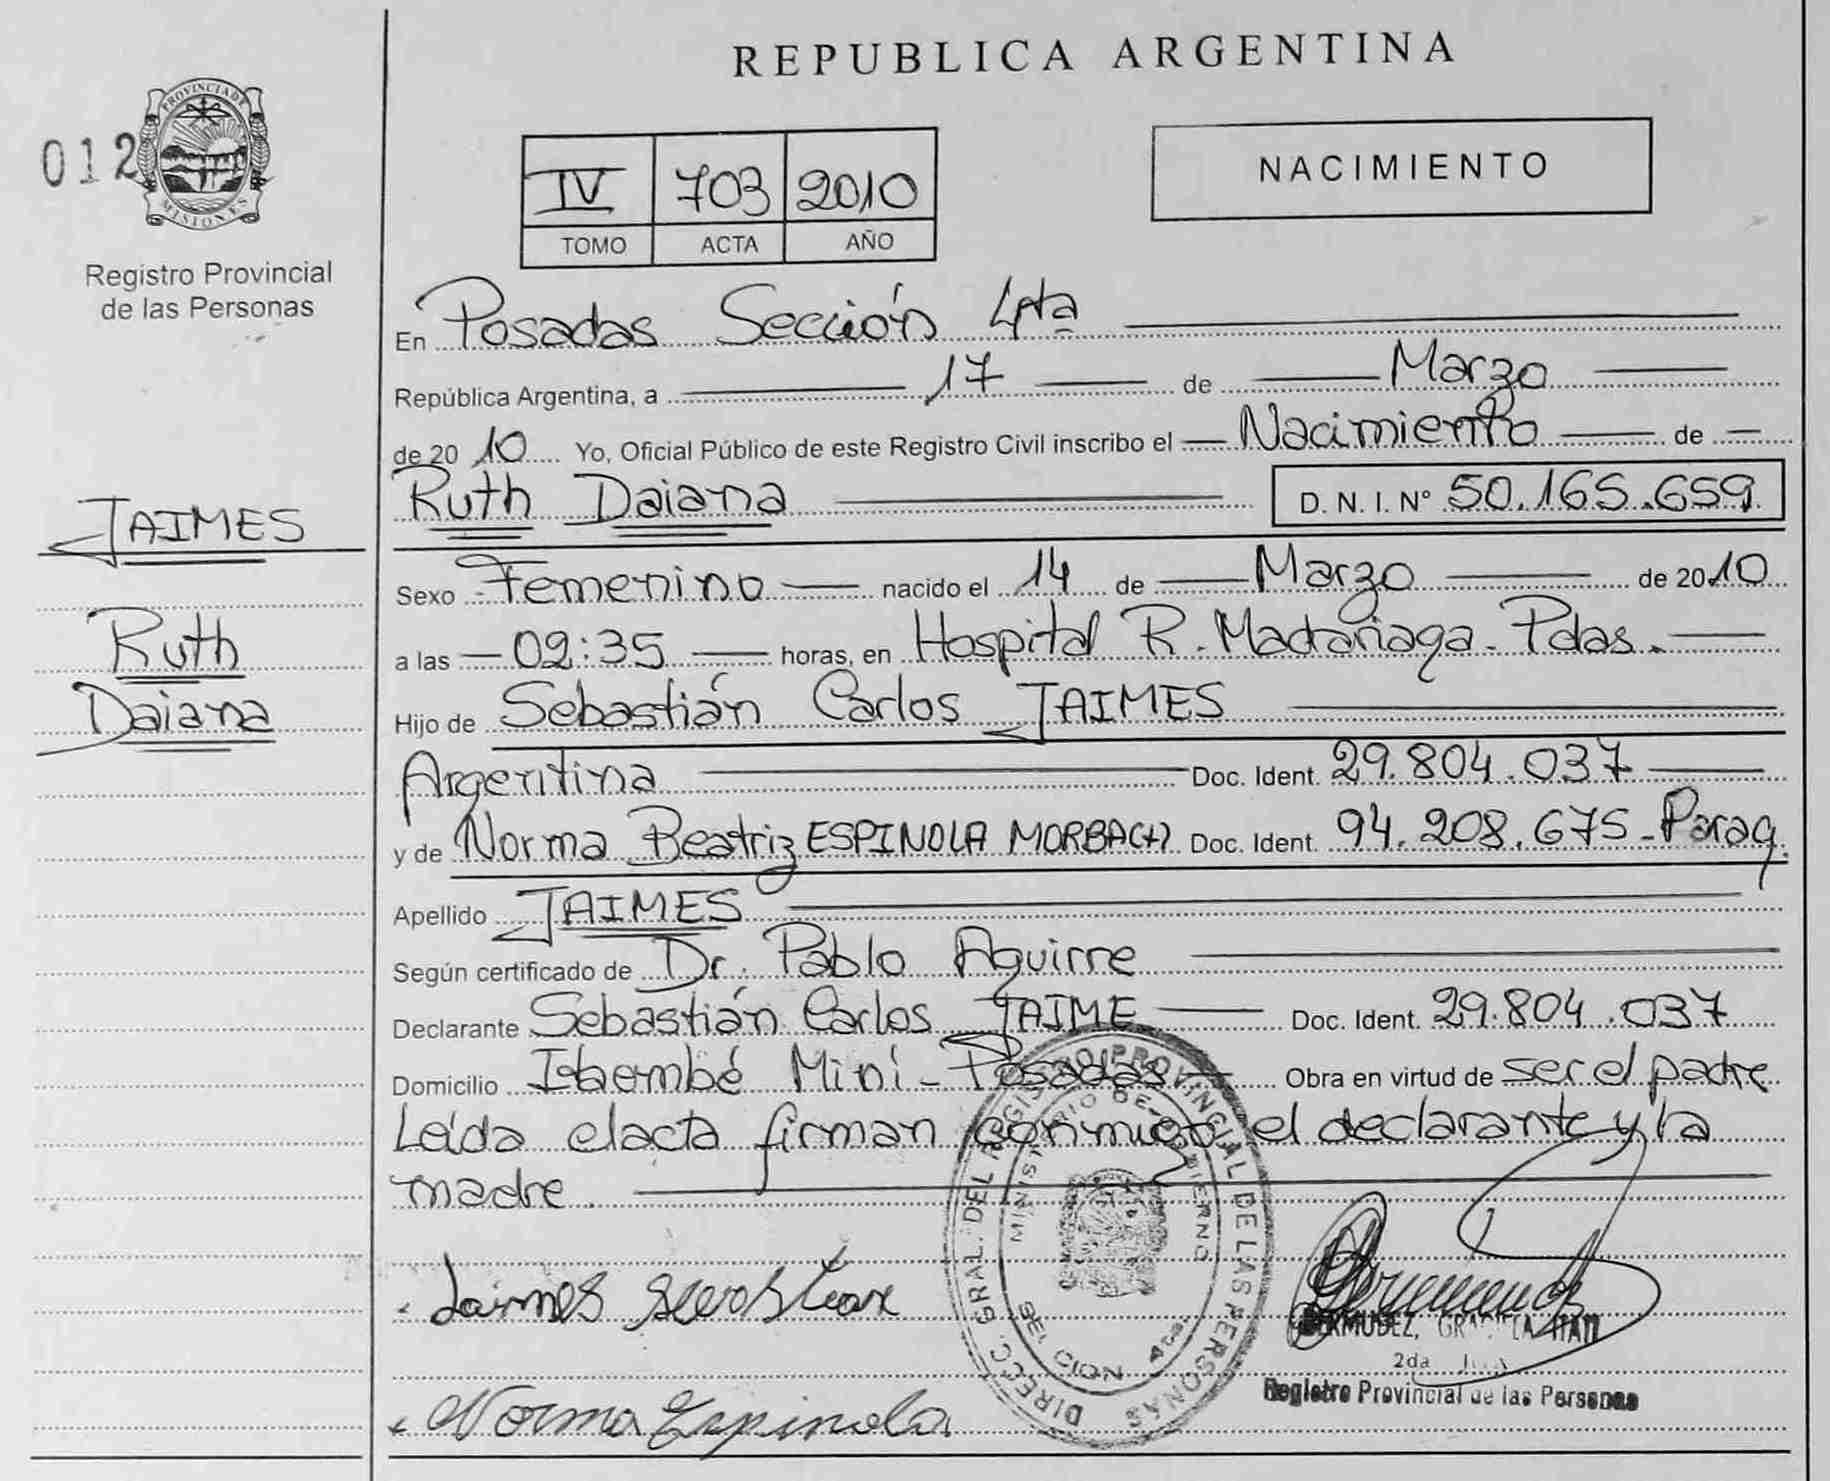 REPUBLICA ARGENTINA
PROVINCIA DE MISIONES
012
Registro Provincial
de las Personas
NACIMIENTO
IV 703 2010
TOMO ACTA AÑO
JAIMES
Ruth
Daiana
En Posadas Sección 4ta
República Argentina, a 17 de Marzo
de 2010 Yo, Oficial Público de este Registro Civil inscribo el Nacimiento de
Ruth Daiana D. N. I. Nº 50.165.659
Sexo Femenino nacido el 14 de Marzo de 2010
a las 02:35 horas, en Hospital R. Madariaga - Pdas.
Hijo de Sebastián Carlos JAIMES
Argentina Doc. Ident. 29.804.037
y de Norma Beatriz ESPINOLA MORBACH Doc. Ident. 94.208.675 - Parag.
Apellido JAIMES
Según certificado de Dr. Pablo Aguirre
Declarante Sebastián Carlos JAIME Doc. Ident. 29.804.037
Domicilio Itaembé Mini - Posadas Obra en virtud de ser el padre
Leída el acta firman conmigo el declarante y la
madre.
Jaimes
Norma Espinola
DIRECC. GRAL. DEL REGISTRO PROVINCIAL DE LAS PERSONAS
MINISTERIO DE GOBIERNO
BERMUDEZ, GRACIELA ITATI
2da
Registro Provincial de las Personas